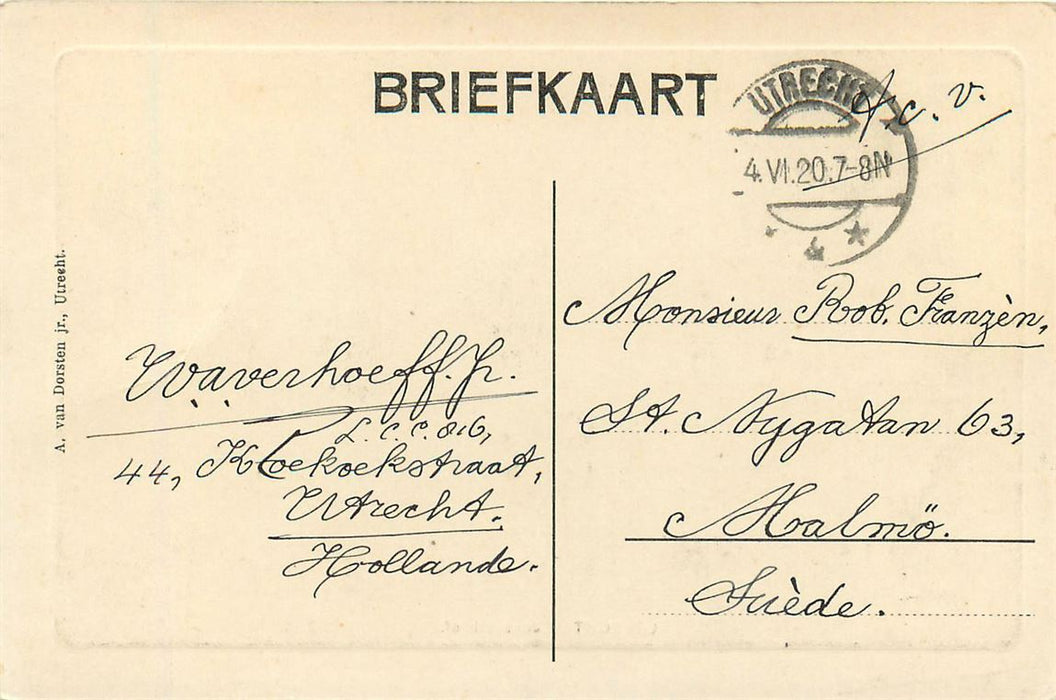 BRIEFKAART
UTRECHT
4.VI.20.7-8N
4
c. v.
A. van Dorsten jr., Utrecht.
Waverhoeff. Jr.
L. C. C. 816,
44, Koekoekstraat,
Utrecht.
Hollande.
Monsieur Rob. Franzèn,
St. Nygatan 63,
Malmö.
Suède.